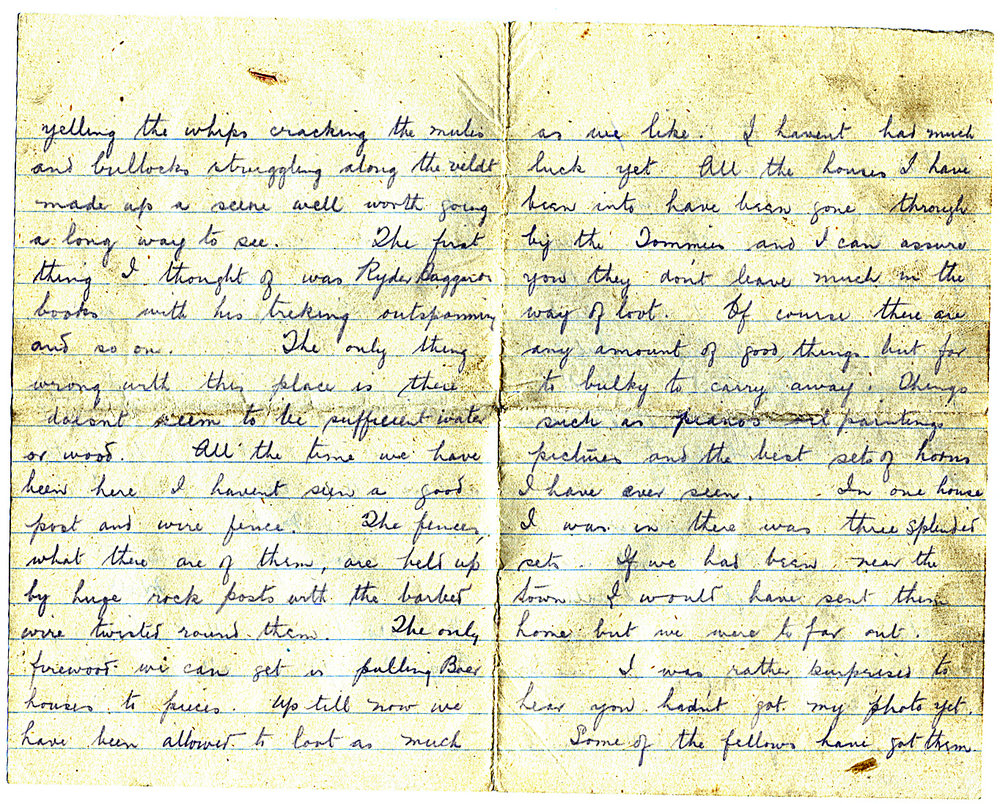 yelling the whips cracking the mules
and bullocks struggling along the veldt
made up a scene well worth going
a long way to see. The first
thing I thought of was Ryder Haggards
books with his treking outspanning
and so on. The only thing
wrong with this place is there
doesnt seem to be sufficient water
or wood. All the time we have
been here I havent seen a good
post and wire fence. The fences,
what there are of them, are held up
by huge rock posts with the barbed
wire twisted round them. The only
firewood we can get is pulling Boer
houses to pieces. Up till now we
have been allowed to loot as much
as we like. I havent had much
luck yet. All the houses I have
been into have been gone through
by the Tommies and I can assure
you they dont leave much in the
way of loot. Of course there are
any amount of good things but far
to bulky to carry away. Things
such as pianos oil paintings
pictures and the best sets of horns
I have ever seen. In one house
I was in there was three splended
sets. If we had been near the
town I would have sent them
home but we were to far out.
I was rather surprised to
hear you hadnt got my photo yet.
Some of the fellows have got them.